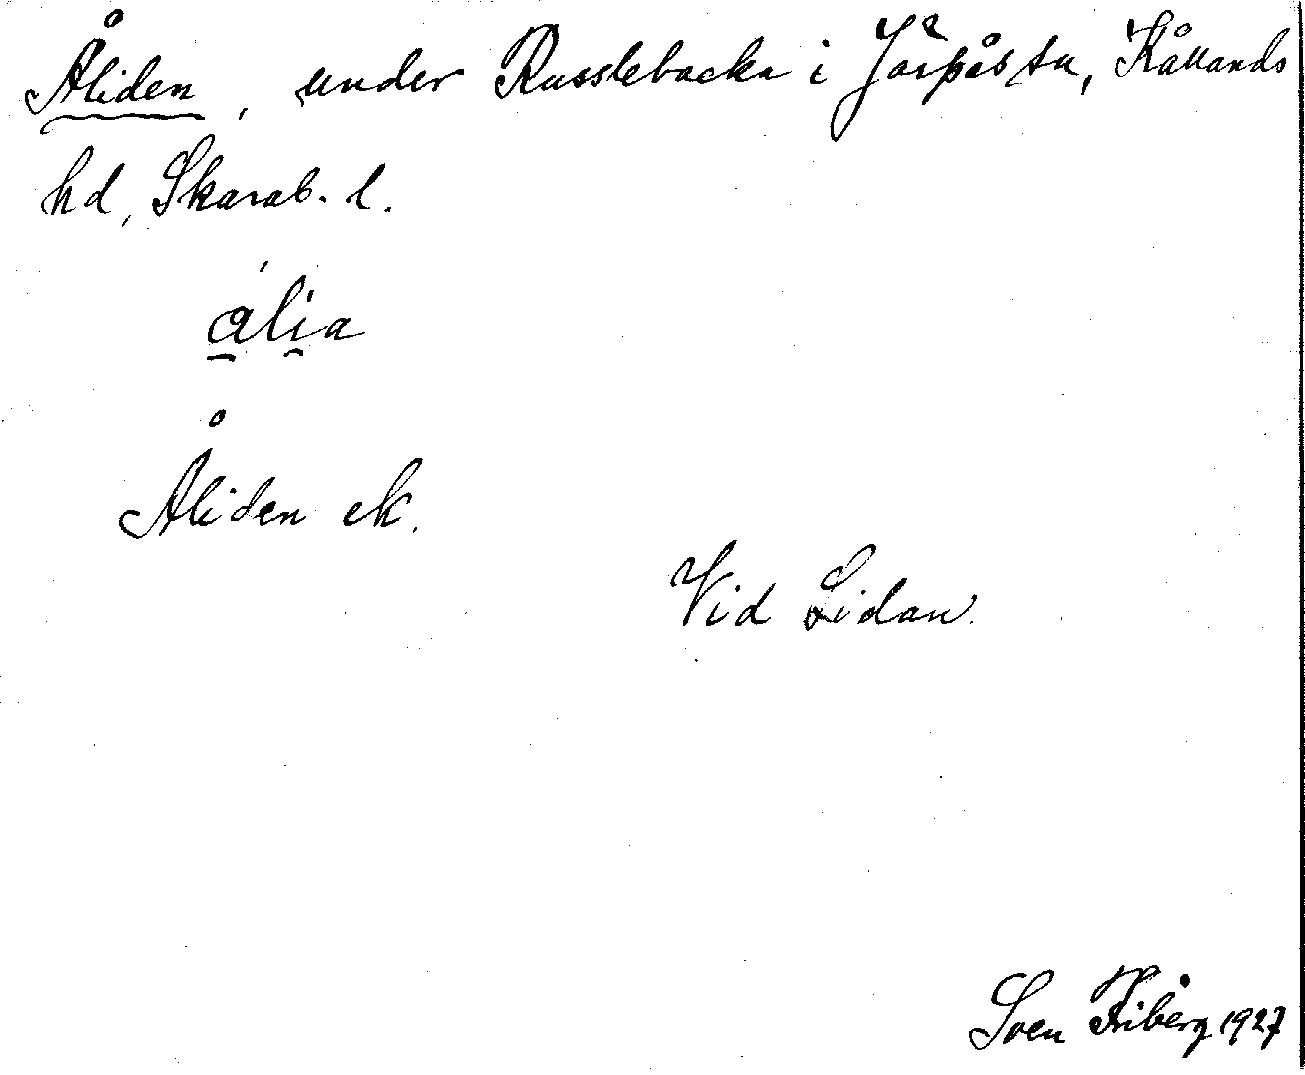 Åliden, under Russlebacka i Järpås sn, Kållands
hd, Skarab. l.
ålia
Åliden ek.
Vid Lidan.
Sven Friberg 1927